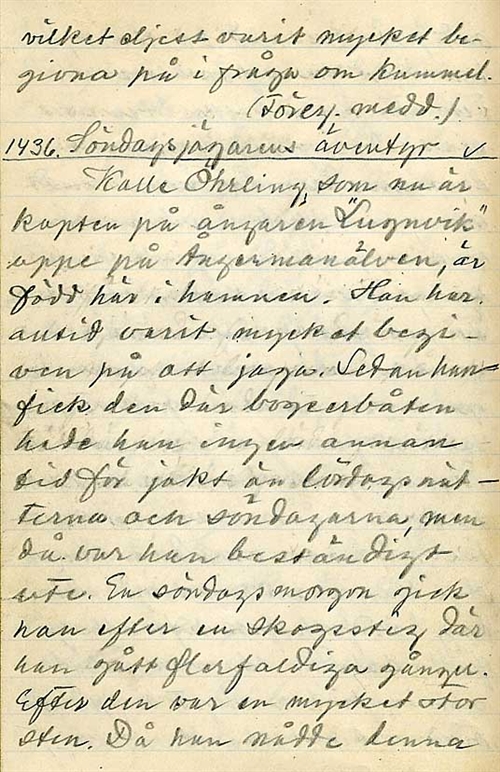 vilket djess varit mycket be-
givna på i fråga om kummel.
(Föreg. medd.)
1436. Söndagsjägarens äventyr ✓
Kalle Öhrling, som nu är
kapten på ångaren "Lugnvik"
uppe på Ångermanälven, är
född här i hamnen. Han har
alltid varit mycket begi-
ven på att jaga. Sedan han
fick den där bogserbåten
hade han ingen annan
tid för jakt än lördagsnät-
terna och söndagarna, men
då var han beständigt
ute. En söndagsmorgon gick
han efter en skogsstig där
han gått flerfaldiga gånger.
Efter den var en mycket stor
sten. Då han nådde denna